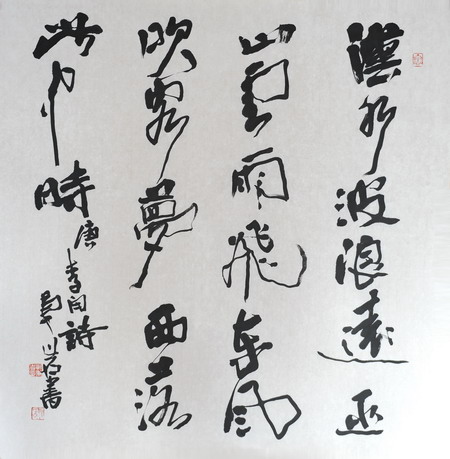 漢水波浪遠巫
山雲雨飛东风
吹客夢西落
此中時
唐李白詩
書